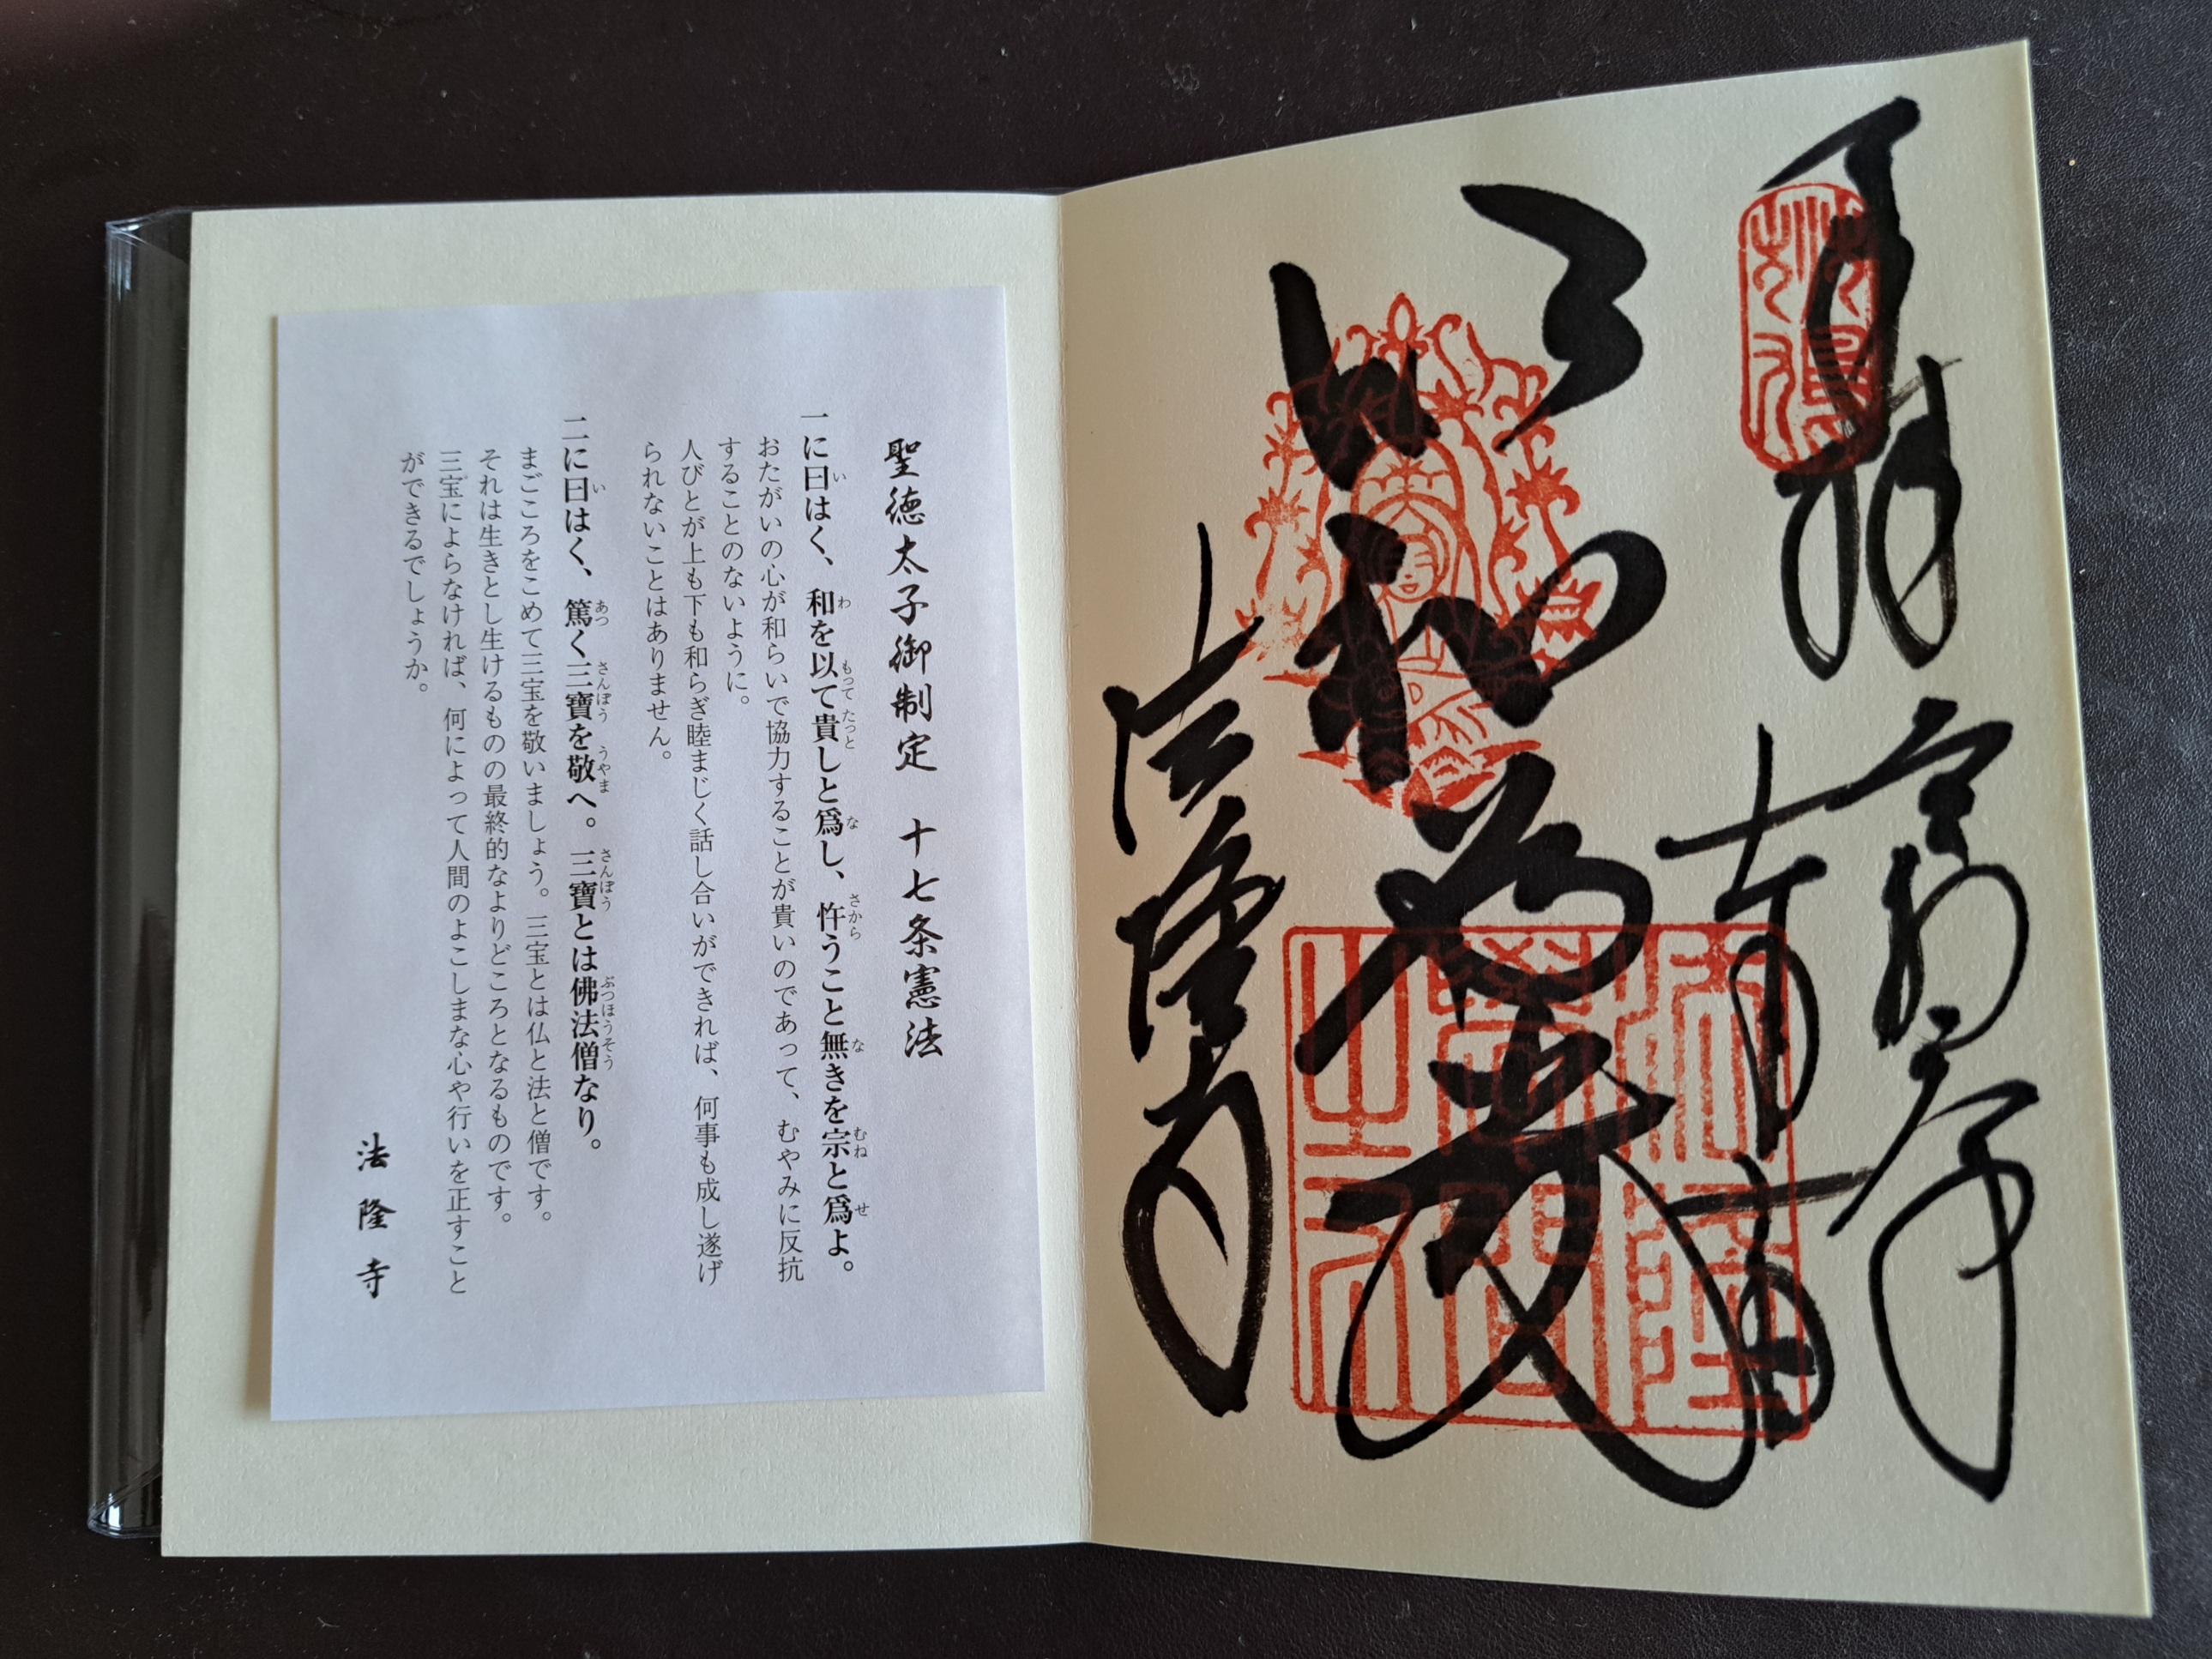 以和為貴
法隆寺
聖徳太子御制定　十七条憲法
い　わ　もって　たっと　な　さから　な　むね　せ
一に曰はく、和を以て貴しと爲し、忤うこと無きを宗と爲よ。
おたがいの心が和らいで協力することが貴いのであって、むやみに反抗
することのないように。
人びとが上も下も和らぎ睦まじく話し合いができれば、何事も成し遂げ
られないことはありません。
い　あつ　さんぽう　うやま　さんぽう　ぶつほうそう
二に曰はく、篤く三寶を敬へ。三寶とは佛法僧なり。
まごころをこめて三宝を敬いましょう。三宝とは仏と法と僧です。
それは生きとし生けるものの最終的なよりどころとなるものです。
三宝によらなければ、何によって人間のよこしまな心や行いを正すこと
ができるでしょうか。
法隆寺